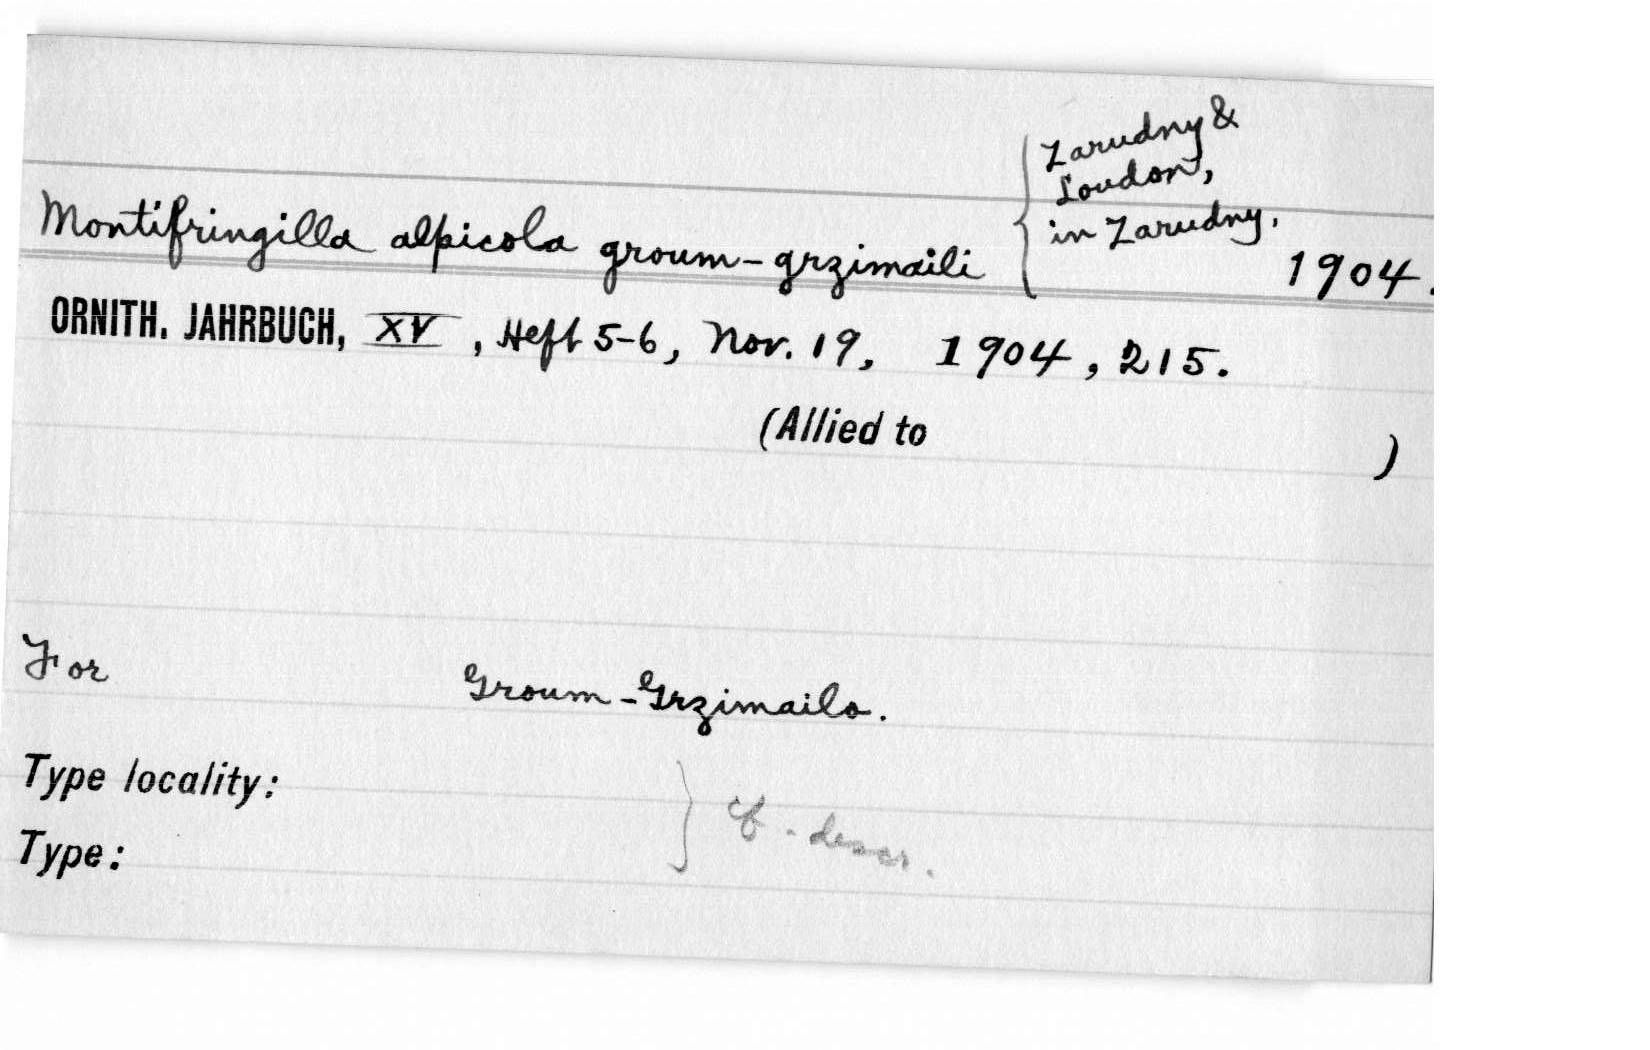 Zarudny &
Loudon,
in Zarudny,
Montifringilla alpicola groum-grzimaili
1904.
ORNITH. JAHRBUCH, XV, Heft 5-6, Nov. 19, 1904, 215.
(Allied to )
For Groum-Grzimailo.
Type locality:
cf. descr.
Type: